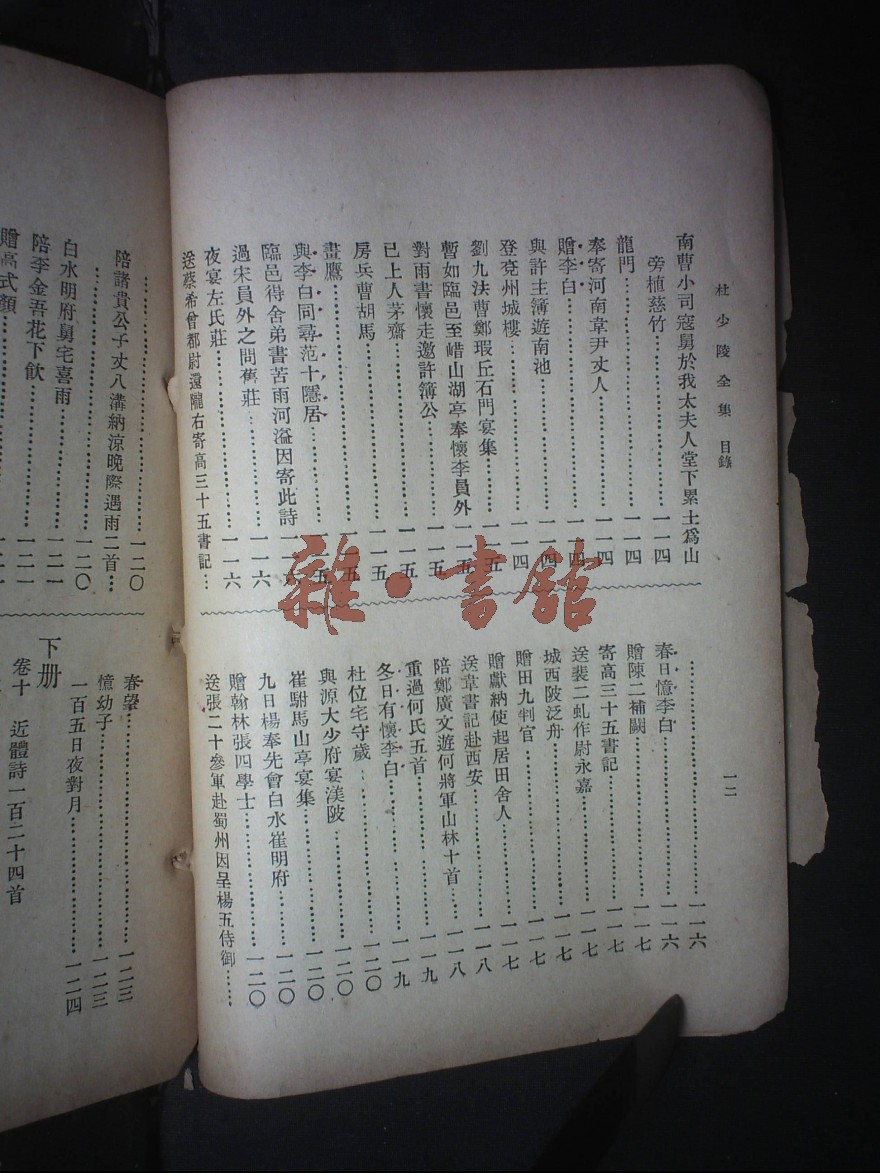 杜少陵全集 目錄
一二
南曹小司寇舅於我太夫人堂下累土爲山
旁植慈竹……一一四
龍門……一一四
奉寄河南韋尹丈人……一一四
贈李白……一一四
與許主簿遊南池……一一四
登兗州城樓……一一四
劉九法曹鄭瑕丘石門宴集……一一五
暫如臨邑至㟙山湖亭奉懷李員外……一一五
對雨書懷走邀許簿公……一一五
已上人茅齋……一一五
房兵曹胡馬……一一五
畫鷹……一一五
與李白同尋范十隱居……一一五
臨邑得舍弟書苦雨河溢因寄此詩……一一六
過宋員外之問舊莊……一一六
夜宴左氏莊……一一六
送蔡希曾都尉還隴右寄高三十五書記…
……一一六
春日憶李白……一一六
贈陳二補闕……一一七
寄高三十五書記……一一七
送裴二虬作尉永嘉……一一七
城西陂泛舟……一一七
贈田九判官……一一七
贈獻納使起居田舍人……一一七
送韋書記赴西安……一一八
陪鄭廣文遊何將軍山林十首……一一八
重過何氏五首……一一九
冬日有懷李白……一一九
杜位宅守歲……一二〇
與源大少府宴渼陂……一二〇
崔駙馬山亭宴集……一二〇
九日楊奉先會白水崔明府……一二〇
贈翰林張四學士……一二〇
送張二十參軍赴蜀州因呈楊五侍御……
……一二〇
陪諸貴公子丈八溝納涼晚際遇雨二首…
……
白水明府舅宅喜雨……一二一
陪李金吾花下飲……一二一
贈高式顏……
下册
卷十 近體詩一百二十四首
一百五日夜對月……一二四
憶幼子……一二三
春望……一二三
雜·書舘